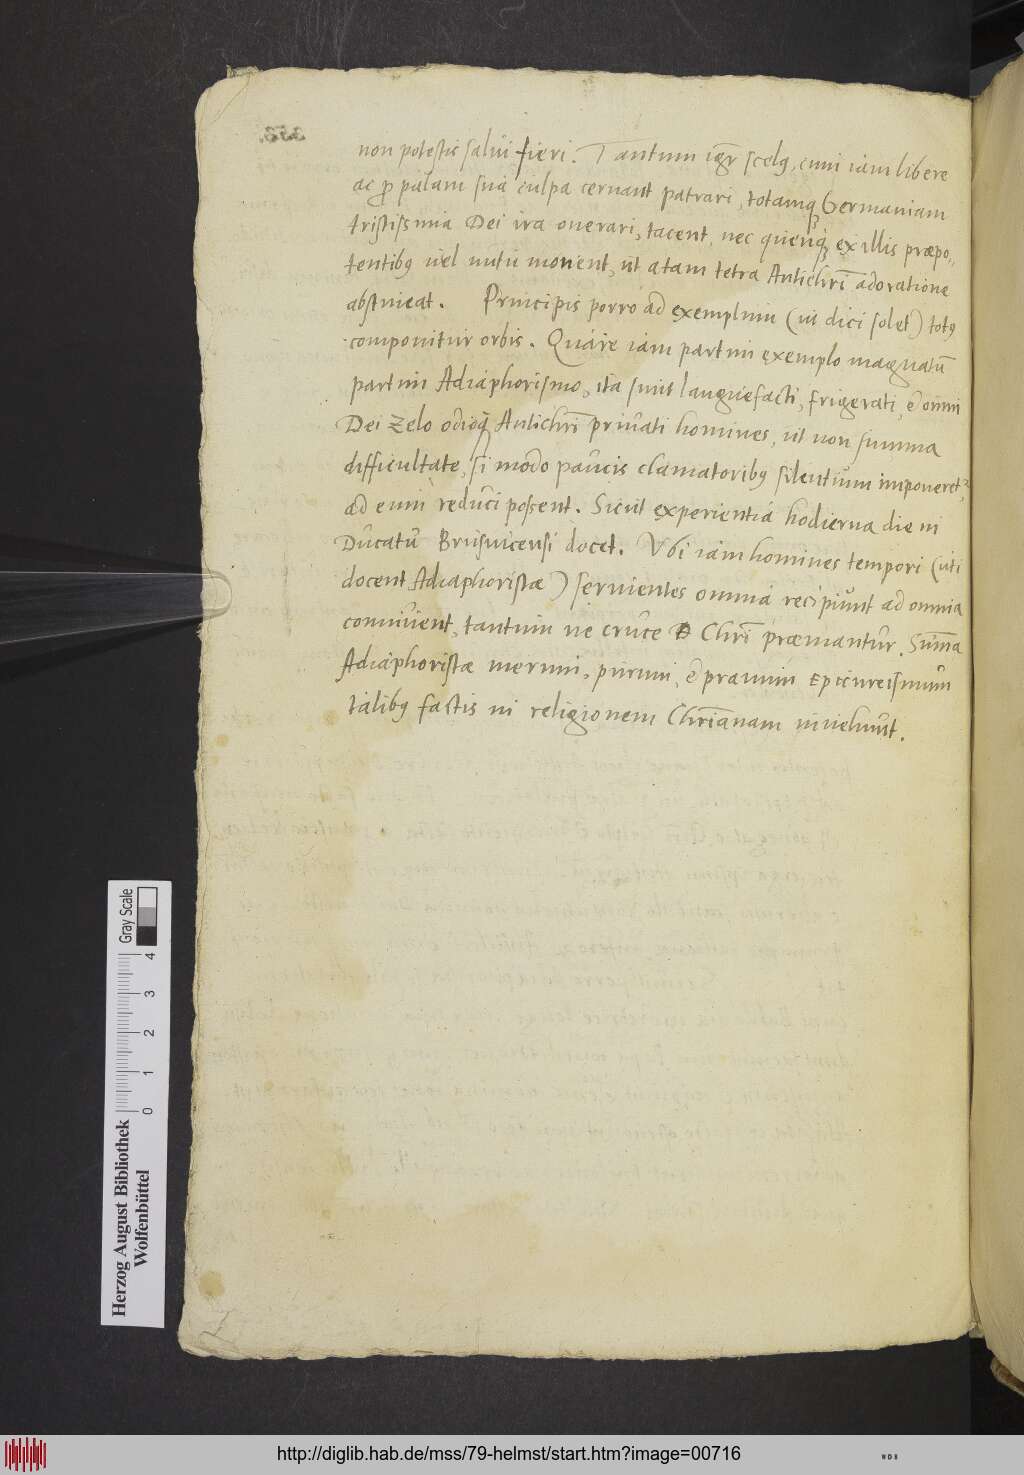 non potestis salui fieri. Tantum igr̄ scelꝰ, cum iam libere
ac ꝓpalam sua culpa cernant patrari, totamqꝫ Germaniam
tristissima Dei ira onerari, tacent, nec quenqꝫ ex illis præpo„
tentibꝰ uel nutu monent, ut a tam tetra Antichrī adoratione
abstineat. Principis porro ad exemplum (ut dici solet) totꝰ
componitur orbis. Quare iam partim exemplo magnatū
partim Adiaphorismo, ita sunt languefacti, frigerati, ē omni
Dei Zelo odioqꝫ Antichrī priuati homines, ut non summa
difficultate, si modo paucis clamatoribꝰ silentium imponeret᷑,
ad eum reduci possent. Sicut experientia hodierna die in
Ducatū Brunsuicensi docet. Vbi iam homines tempori (uti
docent Adiaphoristæ) seruientes omnia recipiunt ad omnia
conniuent, tantum ne cruce Chrī præmantur. Sum̄a
Adiaphoristæ merum, purum, ē prauum Epicureismum
talibꝰ factis in religionem Chrīanam inuehunt.
Gray Scale
4
3
2
1
0
Herzog August Bibliothek
Wolfenbüttel
http://diglib.hab.de/mss/79-helmst/start.htm?image=00716